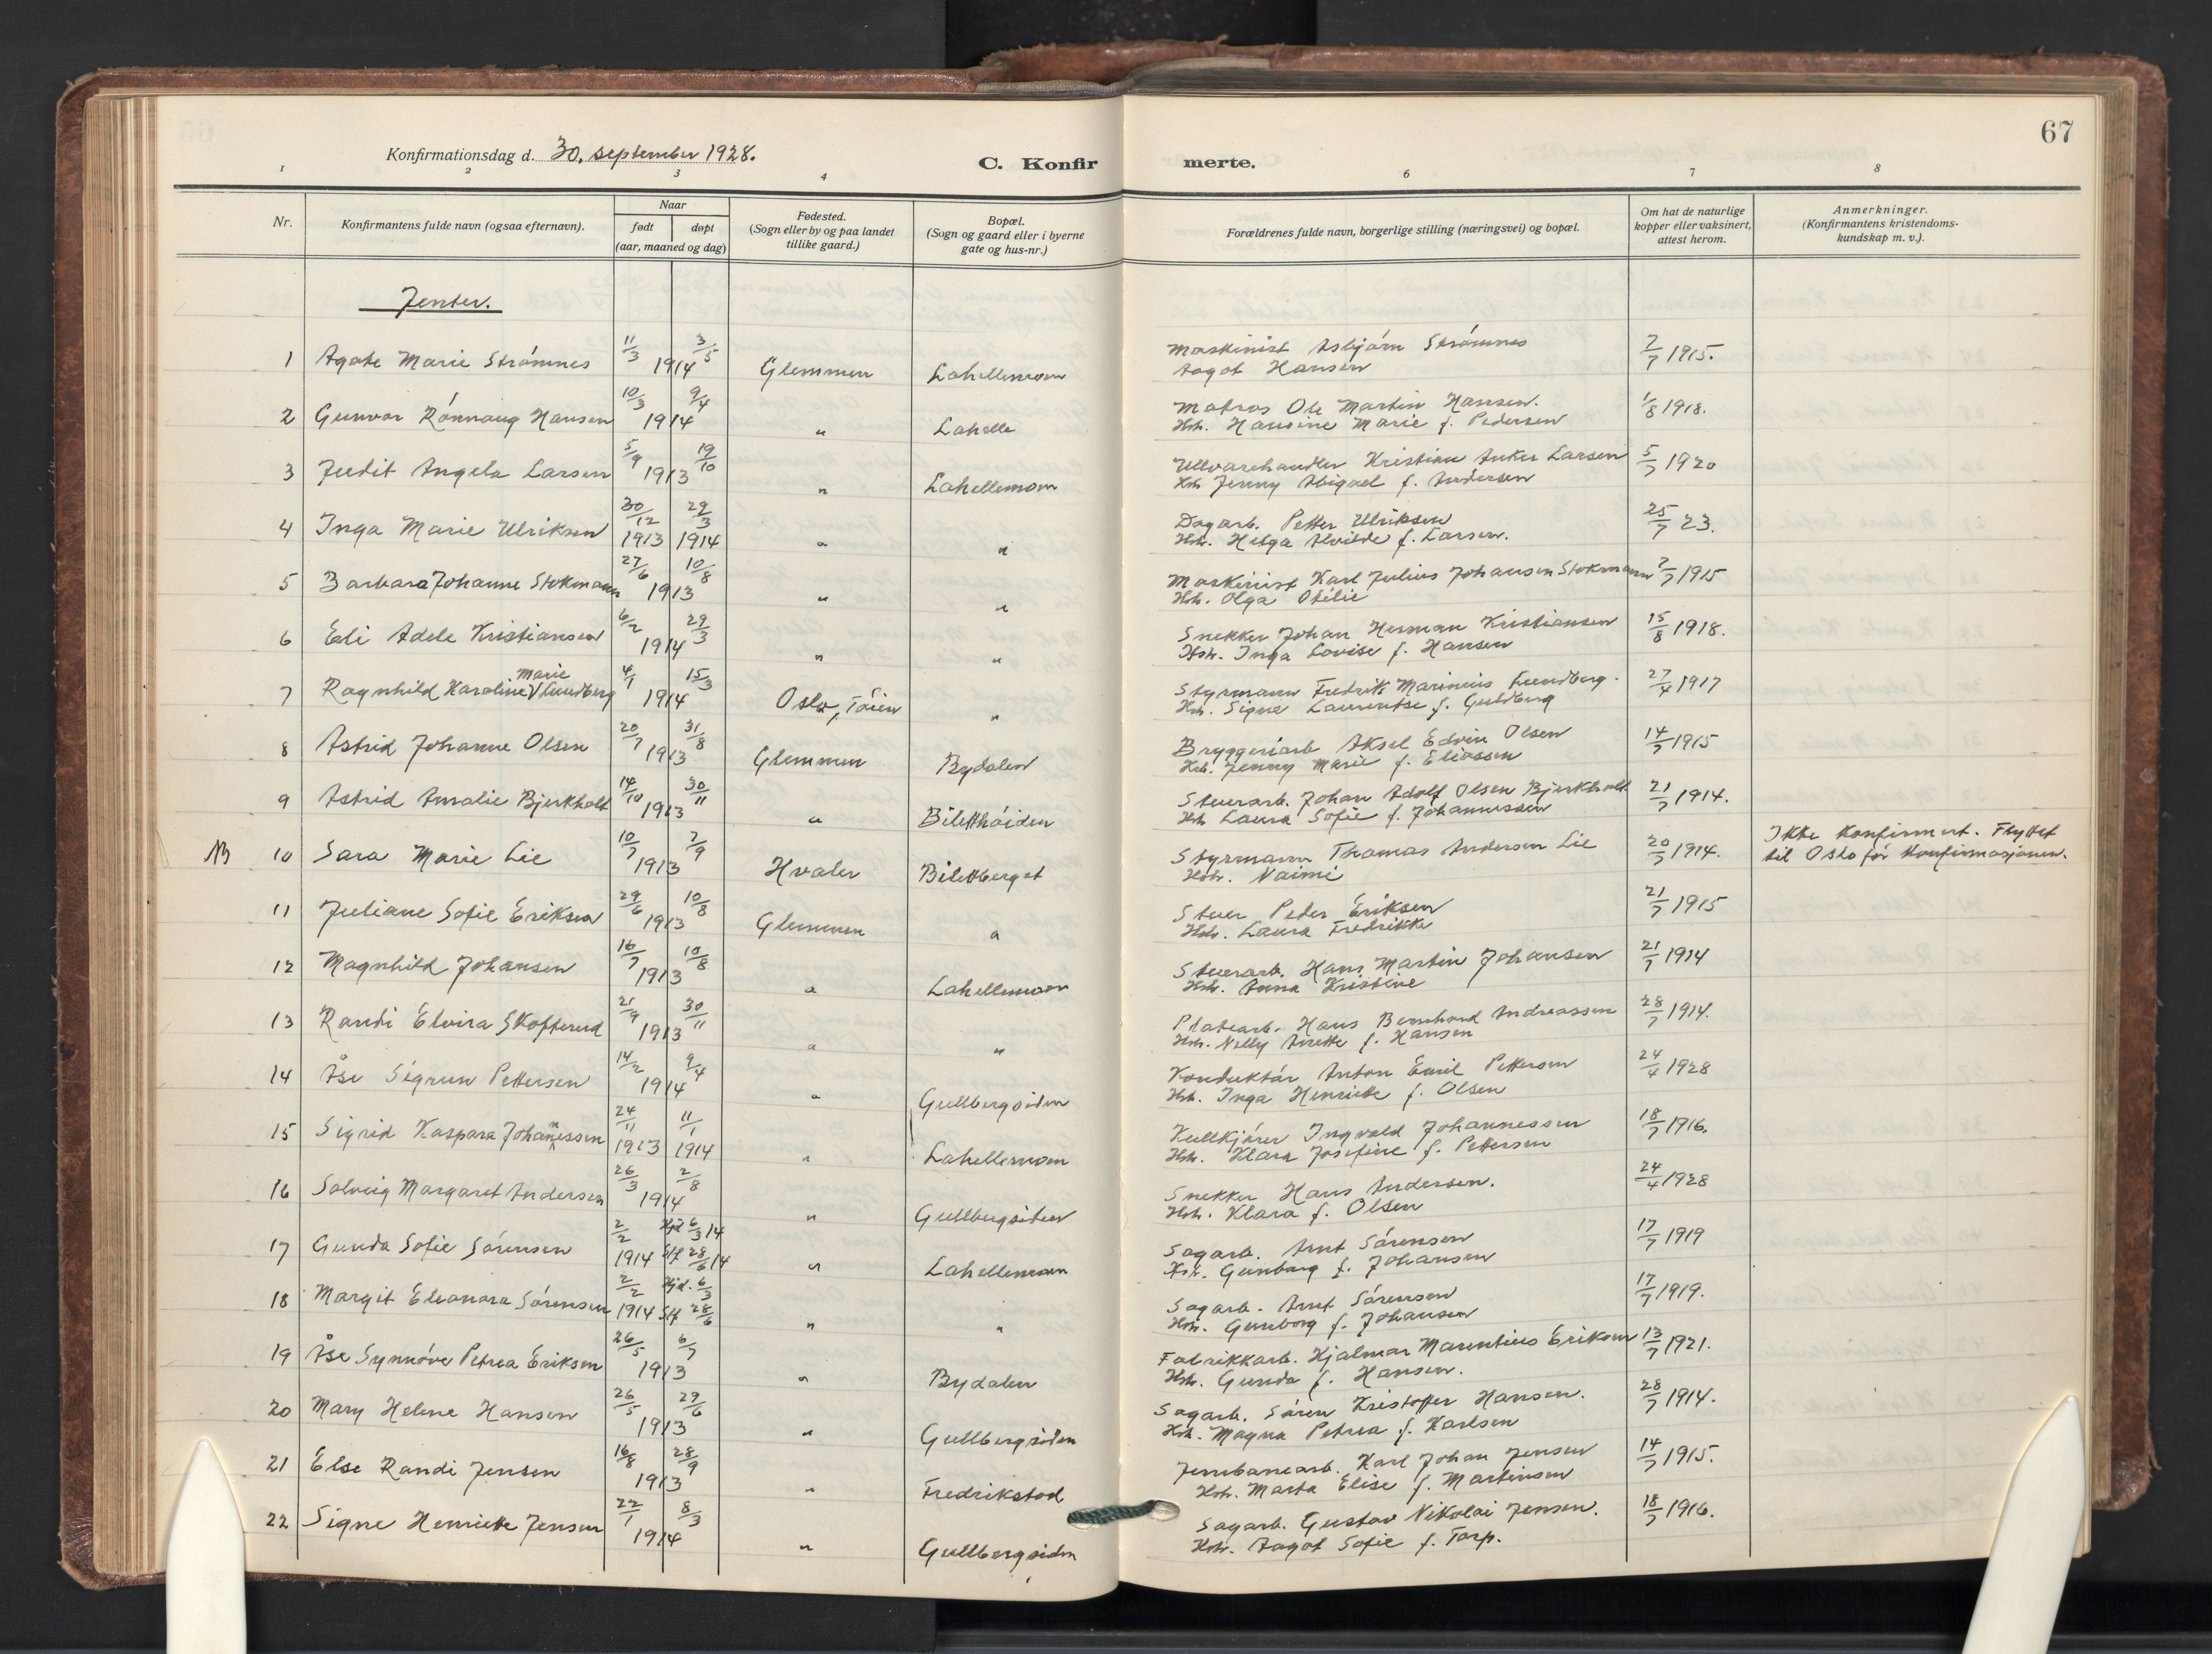 67
Konfirmationsdag d. 30. september 1928.
C. Konfirmerte.
1 2 3 4 6 7 8
Nr.
Konfirmantens fulde navn (ogsaa efternavn).
Naar
født døpt
(aar, maaned og dag)
Fødested.
(Sogn eller by og paa landet
tillike gaard.)
Bopæl.
(Sogn og gaard eller i byerne
gate og hus-nr.)
Forældrenes fulde navn, borgerlige stilling (næringsvei) og bopæl.
Om hat de naturlige
kopper eller vaksinert,
attest herom.
Anmerkninger.
(Konfirmantens kristendoms-
kundskap m. v.).
Jenter.
1 Agate Marie Strømnes 11/3 3/5 1914 Glemmen Lahellemoen Maskinist Asbjørn Strømnes 7/7 1915.
Aagot Hansen
2 Gunvor Rønnaug Hansen 10/3 9/4 1914 " Lahelle Matros Ole Martin Hansen. 1/8 1918.
Hstr. Hansine Marie f. Pedersen
3 Judit Angela Larsen 5/9 19/10 1913 " Lahellemoen Ullvarehandler Kristian Anker Larsen 5/7 1920
Hstr. Jenny Abigael f. Andersen
4 Inga Marie Ulriksen 30/12 1913 29/3 1914 " " Dagarb. Petter Ulriksen 25/7 23.
Hstr. Helga Alvilde f. Larsen.
5 Barbara Johanne Stokmann 27/6 10/8 1913 " " Maskinist Karl Julius Johansen Stokmann 7/7 1915
Hstr. Olga Otilie
6 Eli Adele Kristiansen 6/2 29/3 1914 " " Snekker Johan Herman Kristiansen 15/8 1918.
Hstr. Inga Lovise f. Hansen
7 Ragnhild Karoline Marie Lundberg 4/1 15/3 1914 Oslo, Tøien " Styrmann Fredrik Marinius Lundberg. 27/4 1917
Hstr. Signe Laurentse f. Guldberg
8 Astrid Johanne Olsen 20/7 31/8 1913 Glemmen Bydalen Bryggeriarb Aksel Edvin Olsen 14/7 1915
Hstr. Jenny Marie f. Eliassen
9 Astrid Amalie Bjerkholt 14/10 30/11 1913 " Biletthøiden Stuerarb. Johan Adolf Olsen Bjerkholt 21/7 1914.
Hstr Laura Sofie f. Johannessen
NB 10 Sara Marie Lie 10/7 7/9 1913 Hvaler Bilettberget Styrmann Thomas Andersen Lie 20/7 1914. Ikke konfirmert. Flyttet
Hstr. Naimi til Oslo før konfirmasjonen.
11 Juliane Sofie Eriksen 29/6 10/8 1913 Glemmen " Stuer Peder Eriksen 21/7 1915
Hstr. Laura Fredrikke
12 Magnhild Johansen 16/7 10/8 1913 " Lahellemoen Stuerarb. Hans Martin Johansen 21/7 1914
Hstr. Anna Kristine
13 Randi Elvira Skofterud 21/9 30/11 1913 " " Platearb. Hans Bernhard Andreassen 28/7 1914.
Hstr. Nelly Anette f. Hansen
14 Åse Sigrun Pettersen 14/2 9/4 1914 " Gullbergsiden Konduktør Anton Emil Pettersen 24/4 1928
Hstr. Inga Henriette f. Olsen
15 Sigrid Kaspara Johannessen 24/11 1913 11/1 1914 " Lahellemoen Kullkjører Ingvald Johannessen 18/7 1916.
Hstr. Klara Josefine f. Pettersen
16 Solveig Margaret Andersen 26/3 2/8 1914 " Gullbergsiden Snekker Hans Andersen. 24/4 1928
Hstr. Klara f. Olsen
17 Gunda Sofie Sørensen 2/2 1914 Hjd 6/3 14 Stf 28/6 14 " Lahellemoen Sagarb. Arnt Sørensen 17/7 1919
Hstr. Gunborg f. Johansen
18 Margit Eleonora Sørensen 2/2 1914 Hjd. 6/3 Stf 28/6 " " Sagarb. Arnt Sørensen 17/7 1919.
Hstr. Gunborg f. Johansen
19 Åse Synnøve Petrea Eriksen 26/5 6/7 1913 " Bydalen Fabrikkarb. Hjalmar Marentius Eriksen 13/7 1921.
Hstr. Gunda f. Hansen.
20 Mary Helene Hansen 26/5 29/6 1913 " Gullbergsiden Sagarb. Søren Kristoffer Hansen. 28/7 1914.
Hstr. Magna Petrea f. Karlsen
21 Else Randi Jensen 16/8 28/9 1913 " Fredrikstad Jernbanearb. Karl Johan Jensen 14/7 1915.
Hstr. Marta Elise f. Martinsen
22 Signe Henriette Jensen 22/1 8/3 1914 " Gullbergsiden Sagarb. Gustav Nikolai Jensen. 18/7 1916.
Hstr. Aagot Sofie f. Torp.